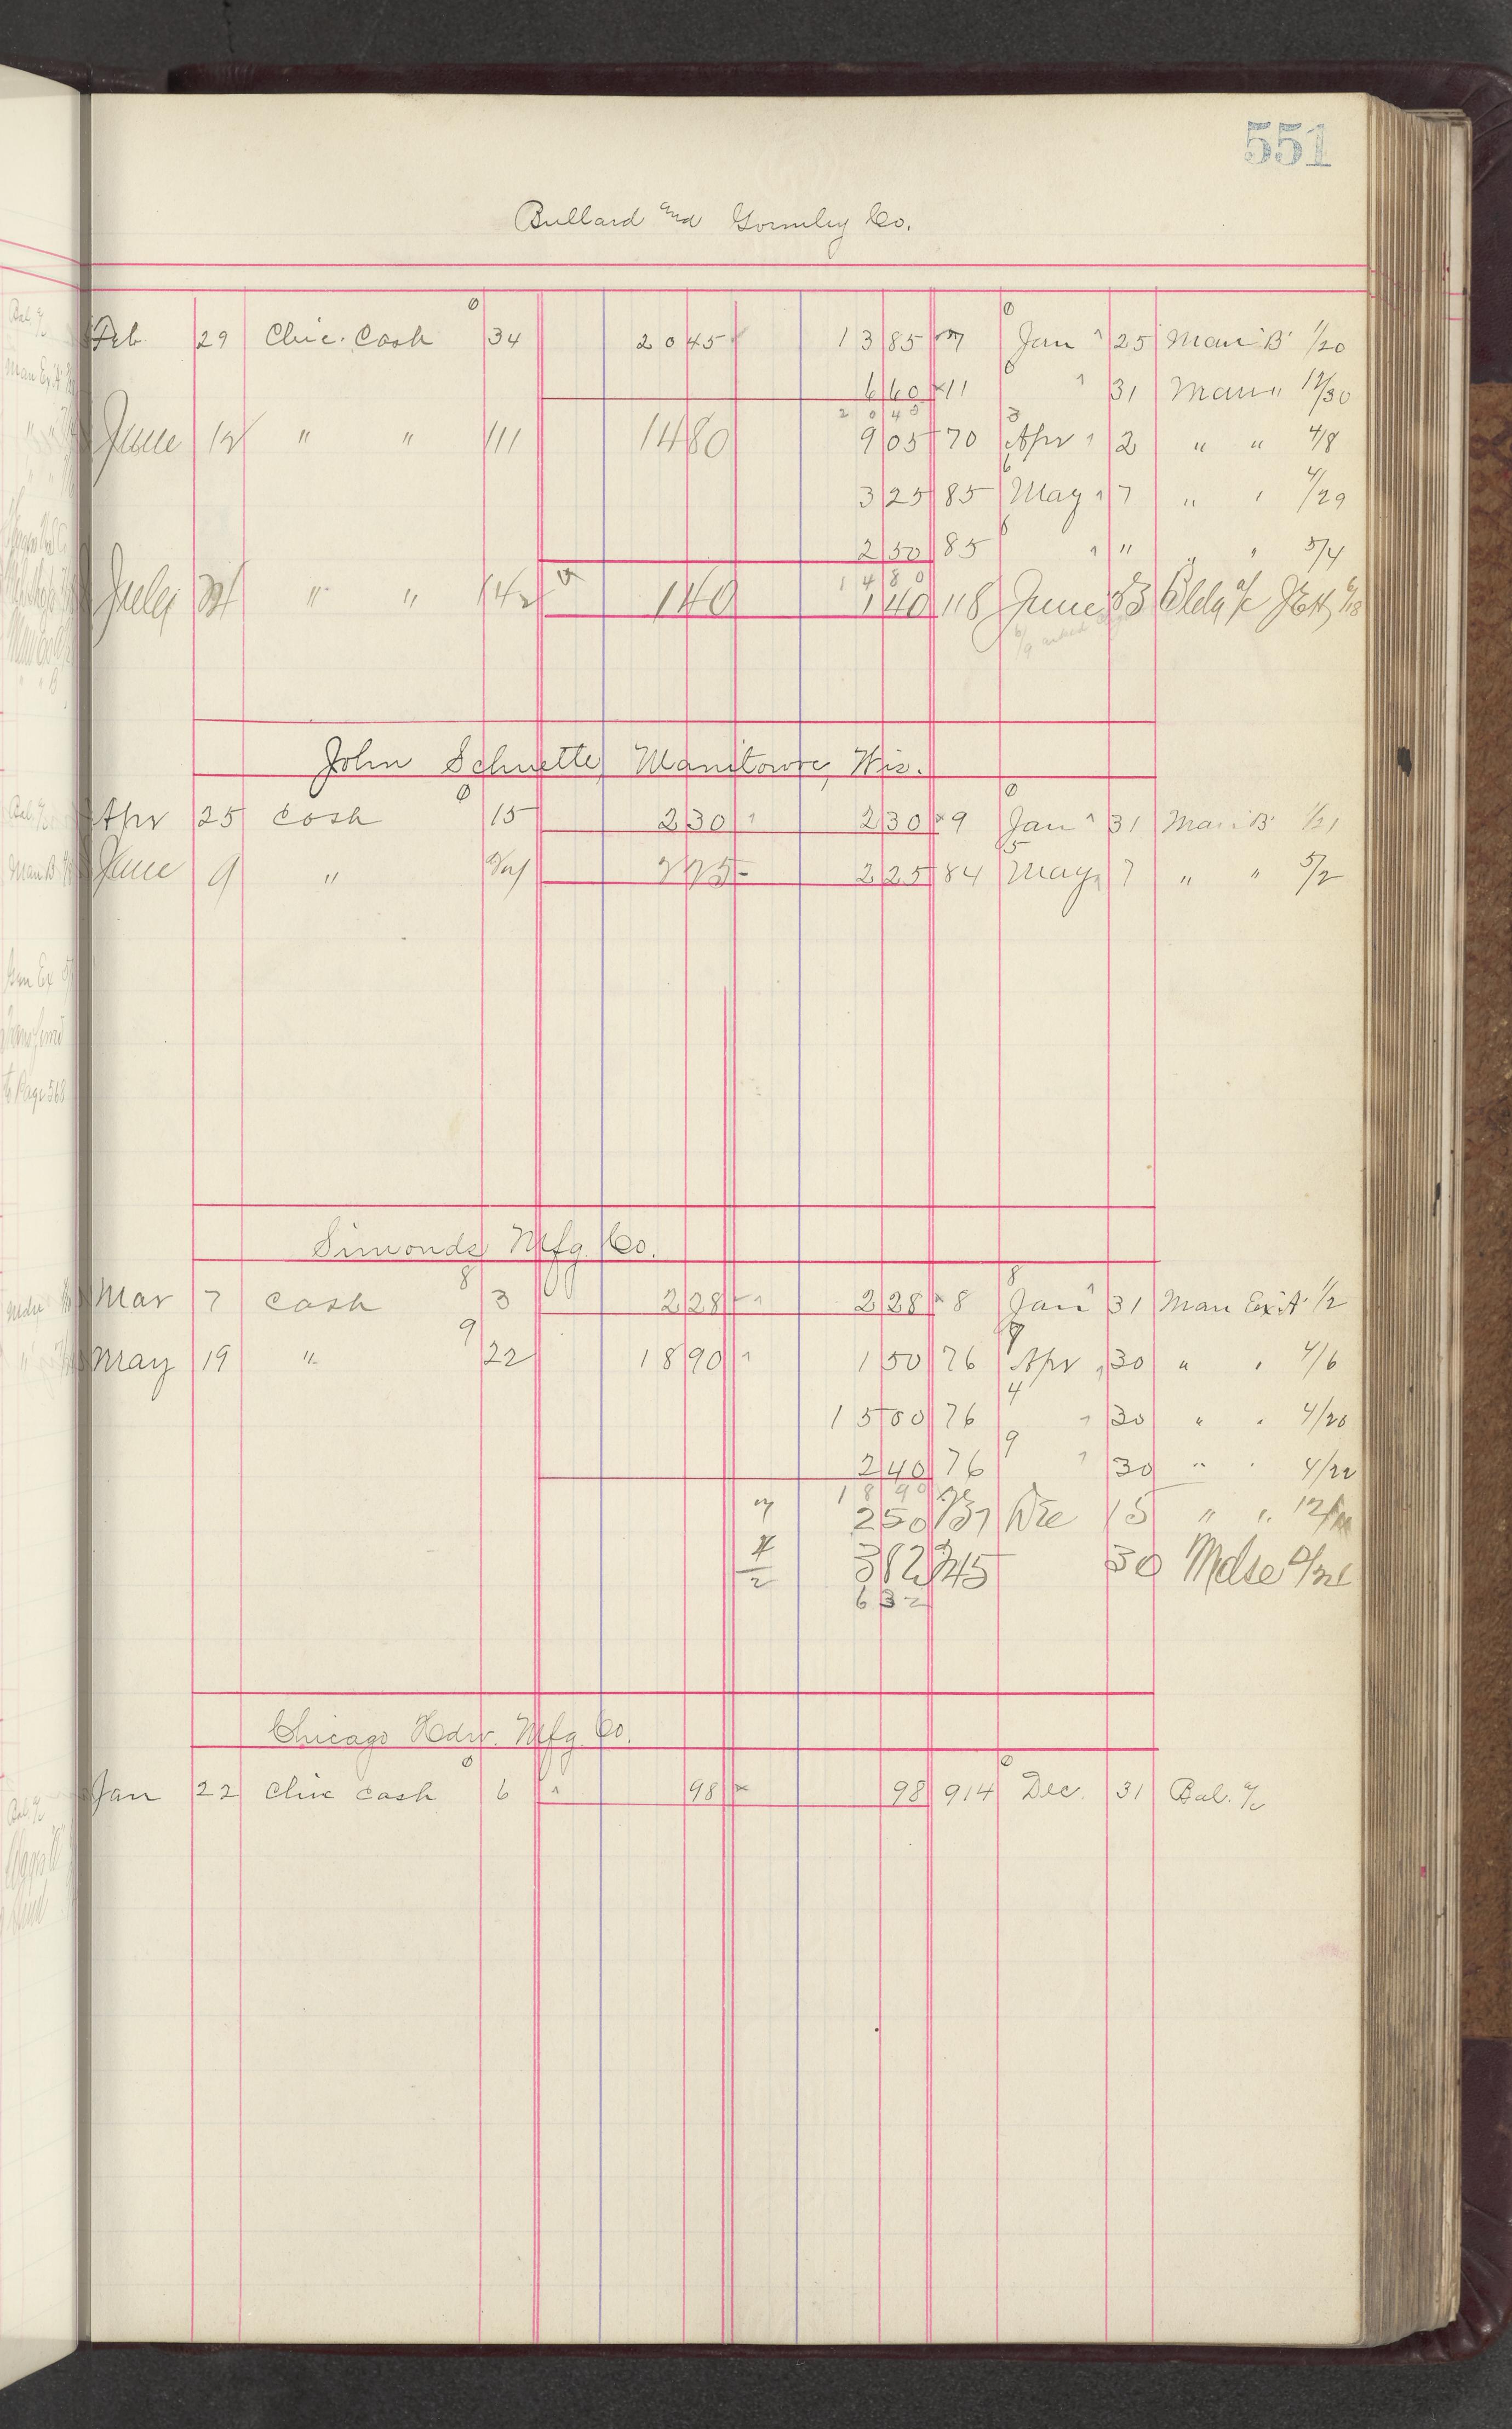 551
Bullard and Gormley Co.
Feb 29 Chic. Cash 34 2045 1385 7 Jan 25 Man B 1/20
660 11 " 31 Man " 12/30
2045
June 12 " " 111 1480 905 70 Apr " 2 " " 4/8
325 85 May " 7 " " 4/29
250 85 " " " " 5/4
1480
July " " 142 140 140 118 June 23 Bldg a/c
John Schuette, Manitowoc, Wis.
Apr 25 Cash 15 230 230 9 Jan 31 Man B 1/21
June 9 " 225 225 84 May 7 " " 5/2
Simonds Mfg. Co.
Mar 7 Cash 3 228 228 8 Jan 31 Man Ex A 1/2
May 19 " 22 1890 150 76 Apr 30 " " 4/6
1500 76 " 30 " " 4/20
240 76 " 30 " " 4/22
1890
250 Dec 15 " "
382 245 30 Mdse
632
Chicago Hdw. Mfg. Co.
Jan 22 Chic Cash 6 98 98 914 Dec. 31 Bal. a/c